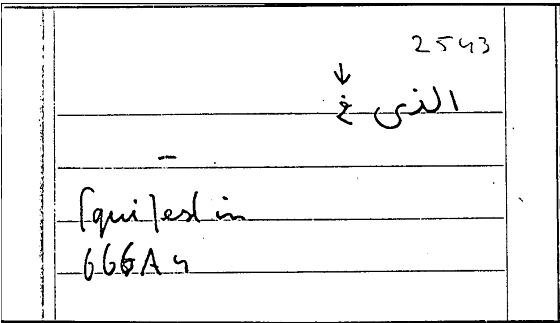 2543
↓
الذى غ
–
[qui] est in
666A4